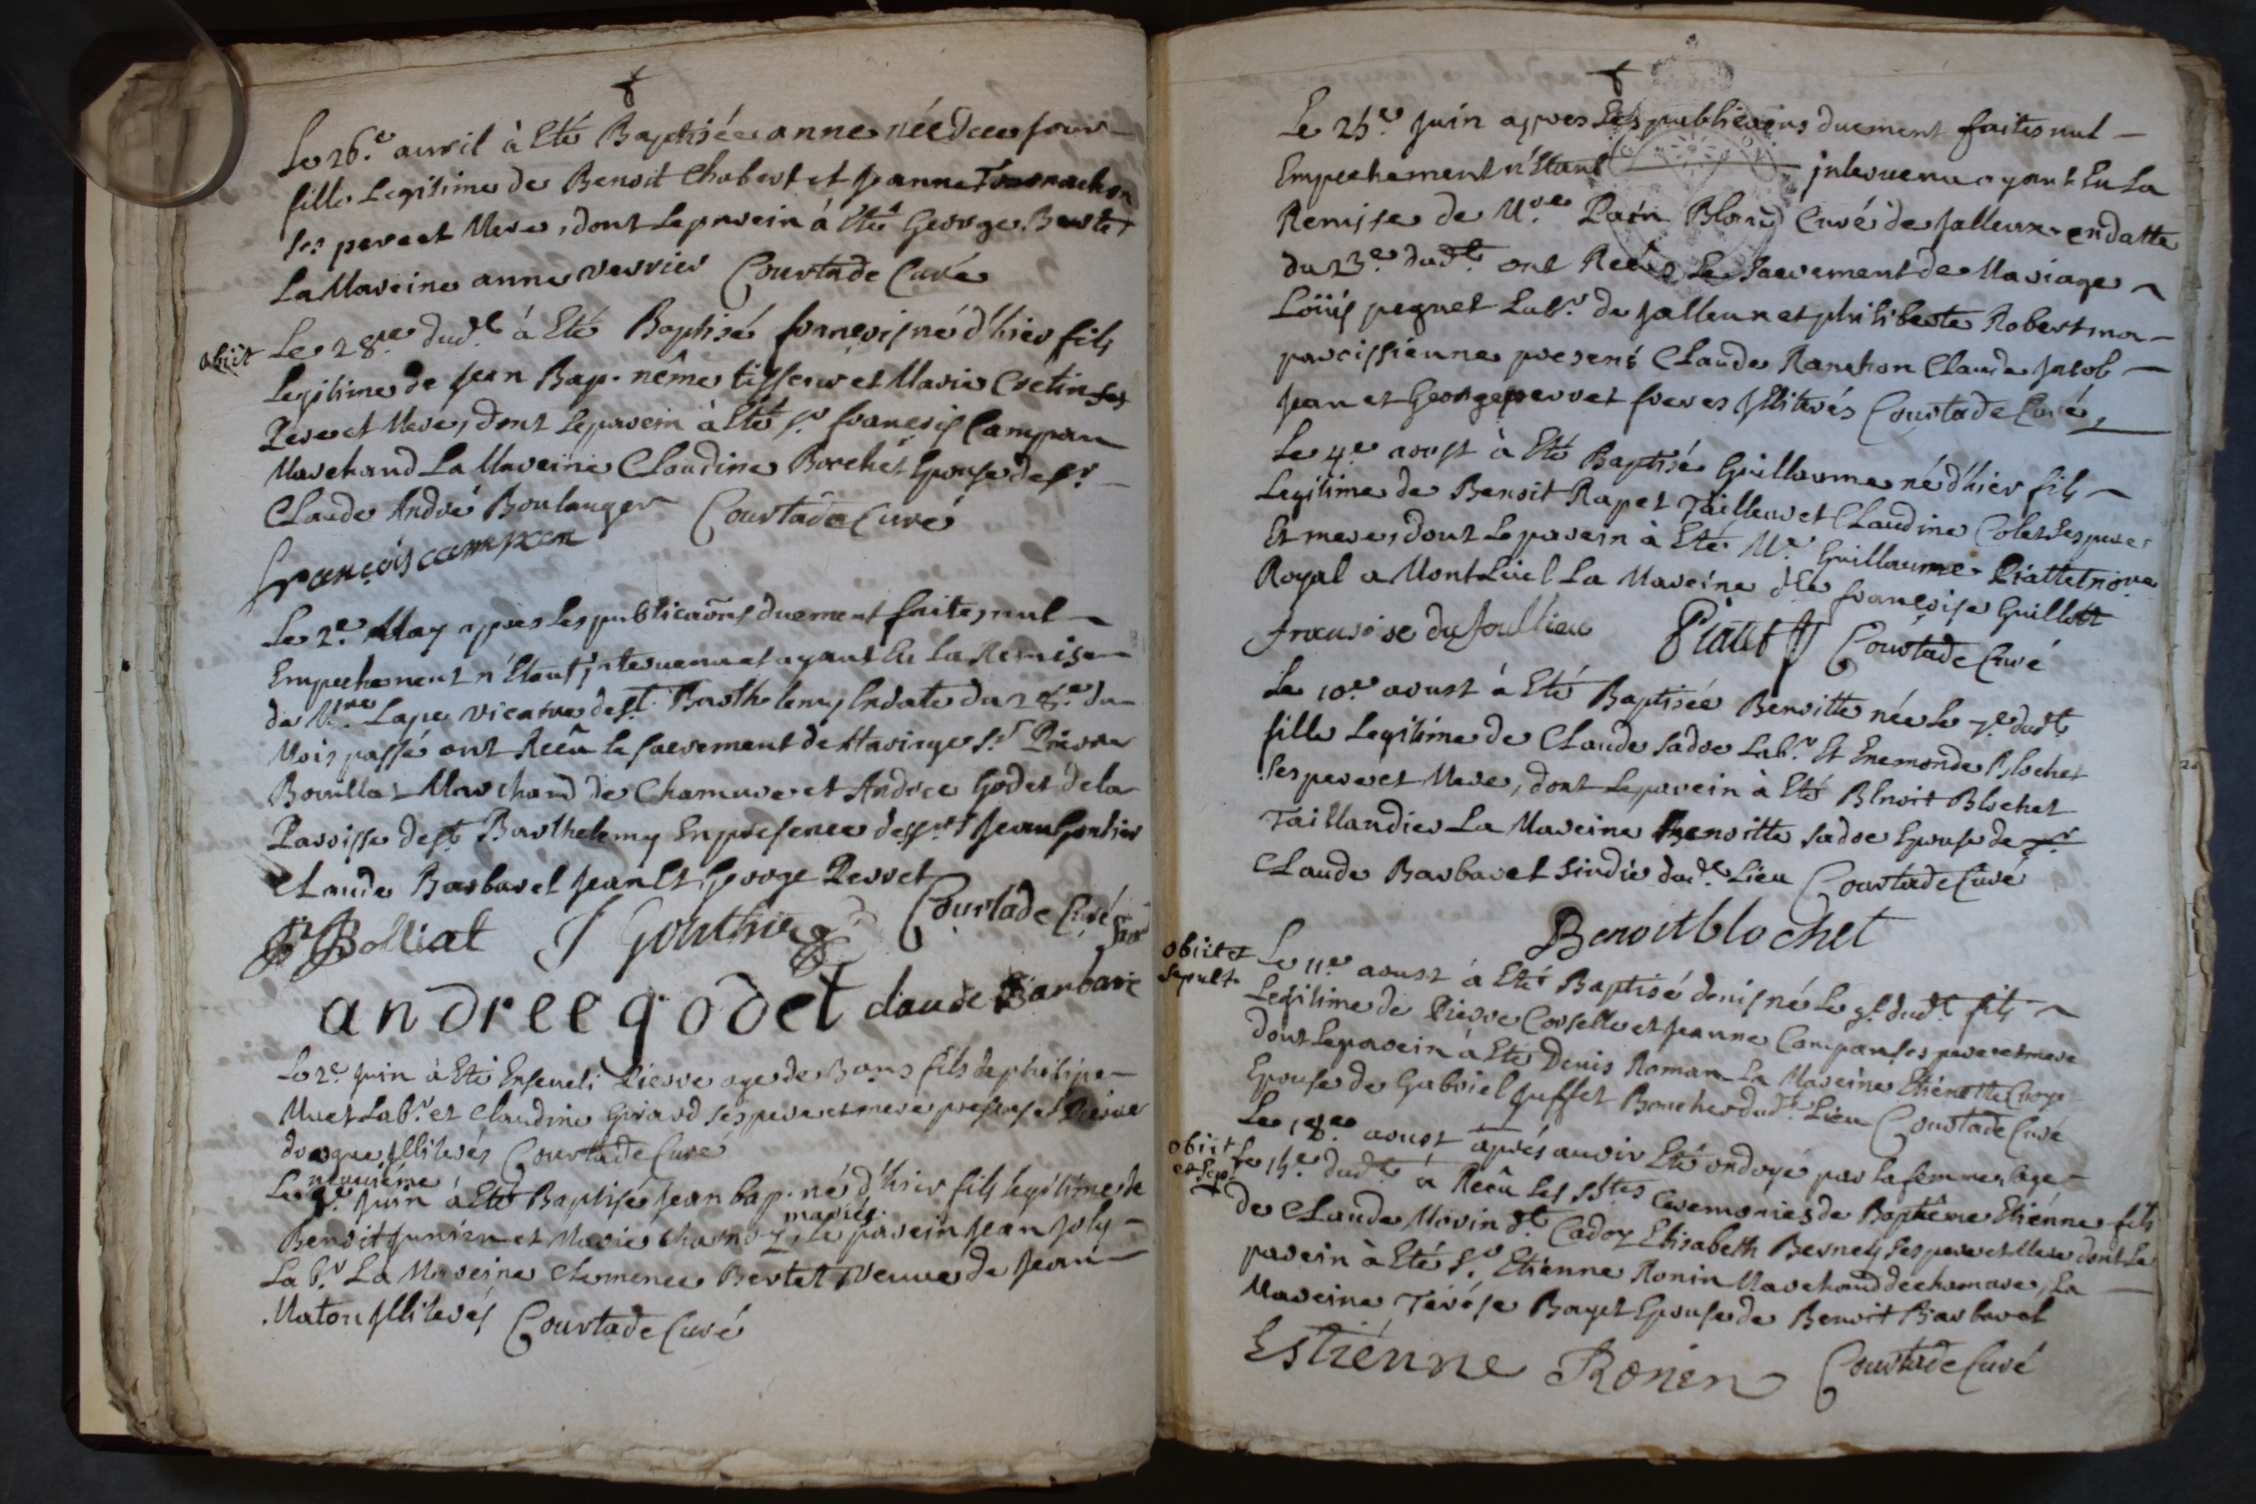 Le 26.e auril à Eté Baptisée anne née du jour
fille Legitime de Benoit Chabert et Jeanne
ses pere et Mere, dont Le parein à Eté George Berte
La Mareine anne verrier Courtade Curé
obiit Le 28.me dud.t à Eté Baptisé françois né d'hier fils
Legitime de Jean Bap. nême tisseur et Marie Cretin ses
Pere et Mere, dont Le parein à Eté s.r françois Campan
Marchand La Mareine Claudine Borchet Epouse de s.r
Claude André Boulanger Courtade Curé
françois campan
Le 2.e May apres Les publicaõns duement faites, nul
Empechement n'Etant jnteruenu et ayant Eu La Remise
de M.re Lape vicaire de s.t Barthelemy En date du 28.e du
Mois passé ont Reçû le sacrement de Mariage s.r Pierre
Bouillat Marchand de Chamure et Andree Godet de la
Paroisse de s.t Barthelemy En presence de Jean Gontier
Claude Barbaret Jean Et George Perret
P Bolliat J Gouthier Courtade Curé
andree godet claude Barbarie
Le 2.e Juin à Eté Enseueli Pierre age de 3 ans fils de philipe
Muet Lab.r et Claudine Girard ses pere et mere presens et Pierre
jllitérés Courtade Curé
neuviéme
Le 9.e Juin à Eté Baptisé Jean bap. né d'hier fils legitime de
mariés.
Benoit Junien et Marie Charnoz, Le parein Jean Joly
Lab.r La Mareine Clemence Bertet Veuve de Jean
Maton jllitérés Courtade Curé
Le 25.e Juin apres Les publicaõns duement faites nul
Empechement n'Etant jnteruenu ayant Eu La
Remise de M.re Pain Blanc Curé de Jalleur en datte
du 23.e dud.t ont Reçû Le Sacrement de Mariage
Loüis peguet Lab.r de Jalleur et philiberte Robert ma
paroissienne presens Claude Ranchon Claude Jacob
Jean et George perret freres jllitérés Courtade Curé
Le 4.e aoust à Eté Baptisé Guillaume né d'hier fils
Legitime de Benoit Rapet Tailleur et Claudine Colet ses pere
Et mere, dont Le parein à Eté M.e Guillaume Piattet no.re
Royal a MontLüel La Mareine d.lle françoise Guillott
francoise dufoullieu Piattet Courtade Curé
Le 10.e aoust à Eté Baptisée Benoitte née Le 7.e dud.t
fille Legitime de Claude Sadoe Lab.r Et Enemonde Blochet
ses pere et Mere, dont Le parein à Eté Benoit Blochet
Taillandier La Mareine Benoitte Sadoe Epouse de s.r
Claude Barbaret Sindic dud.t Lieu Courtade Curé
Benoit blochet
obiit et
sepult. Le 11.e aoust à Eté Baptisé denis né Le 9.e dud.t fils
Legitime de Pierre Corselle et Jeanne Campan ses pere et mere
dont Le parein à Eté Denis Roman La Mareine Etienette
Epouse de Gabriel Juffet Boucher dud.t Lieu Courtade Curé
Le 18.e aoust aprés auoir Eté ondoyé par la femme sage
obiit
et sep. Le 15.e dud.t à Reçû Les S.tes Ceremonies de Baptême Etiénne fils
de Claude Morin d.t Cadoz Elisabeth Berney ses pere et Mere dont Le
parein à Eté S.r Etienne Ronin Marchand de chamure, La
Mareine Térése Bayet Epouse de Benoit Barbaret
Estiénne Ronin Courtade Curé